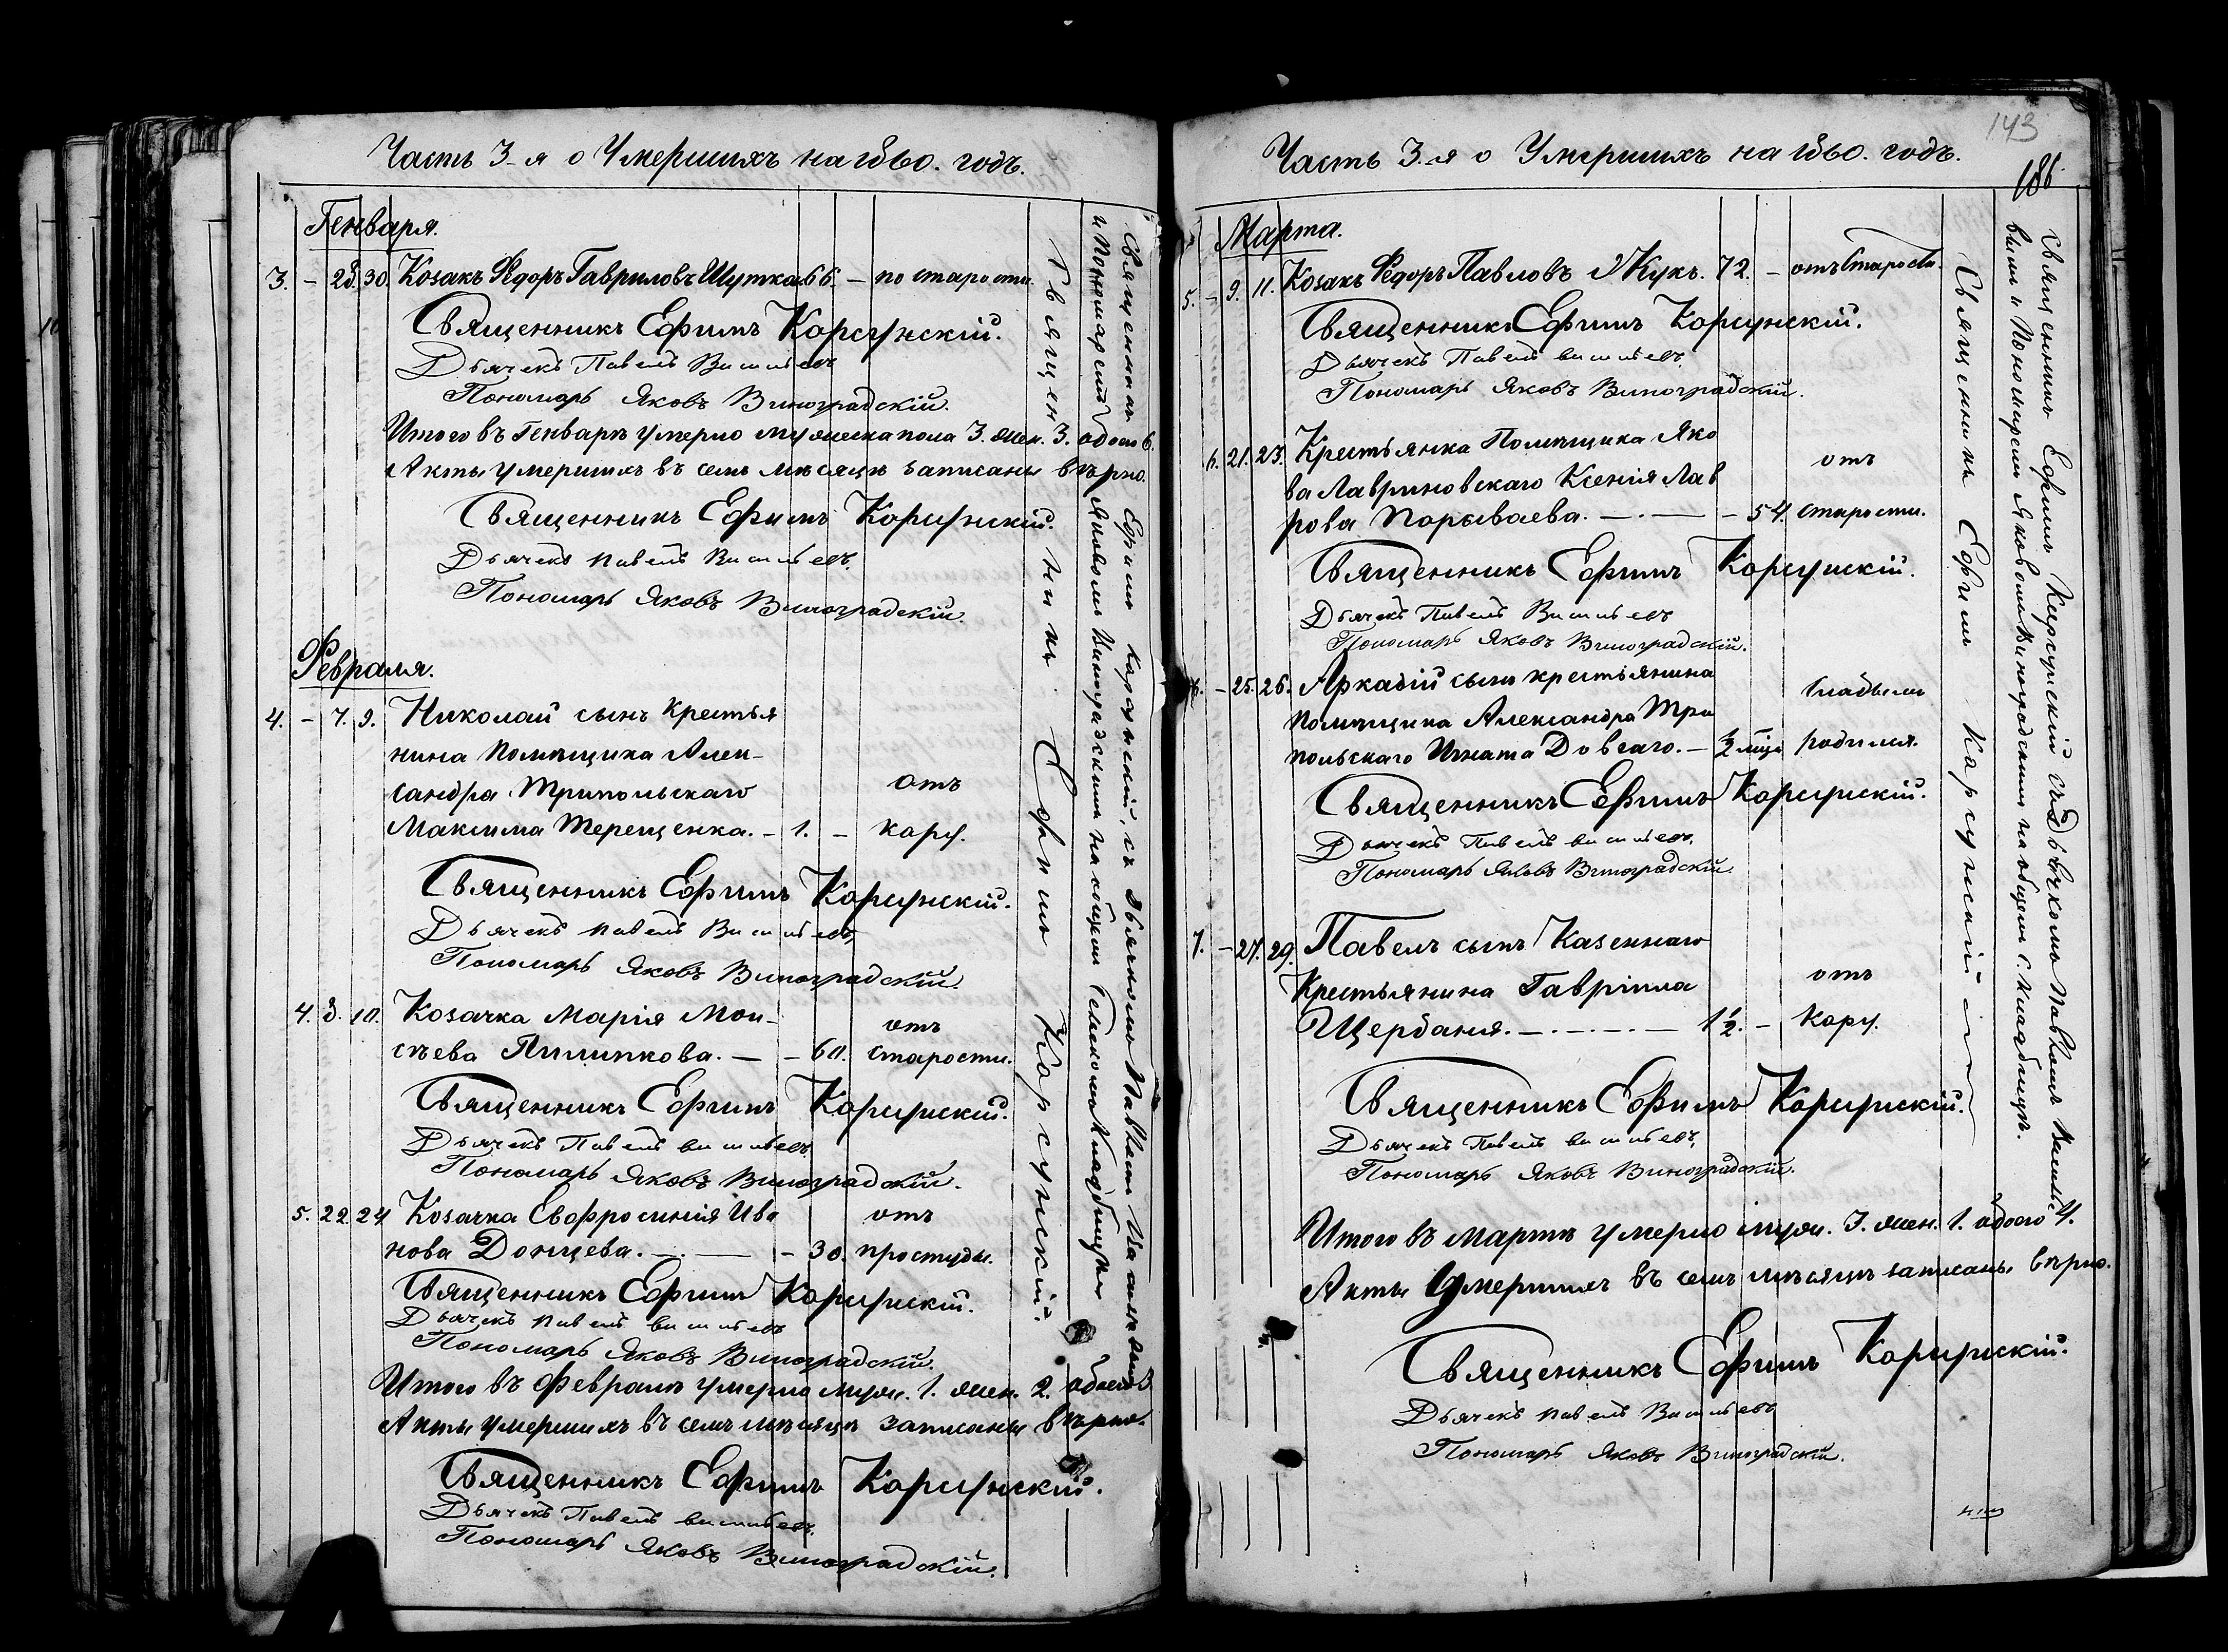 Часть 3-я о Умершихъ на 1860. годъ.
Генваря.
3. – 28. 30. Козакъ Ѳедоръ Гавриловъ Шутка 66. – по старости.
Священникъ Ефимъ Корсунскій.
Дьячекъ Павелъ Васильевъ
Пономарь Яковъ Виноградскій.
Итого въ Генварѣ умерло мужеска пола 3. жен. 3. обоего 6.
Акты умершихъ въ семъ мѣсяцѣ записаны вѣрно.
Священникъ Ефимъ Корсунскій.
Дьячекъ Павелъ Васильевъ.
Пономарь Яковъ Виноградскій.
Февраля.
4. – 7. 9. Николай сынъ крестья
нина помѣщика Алек-
сандра Трипольскаго отъ
Максима Терещенка. – 1. – кору.
Священникъ Ефимъ Корсунскій.
Дьячекъ Павелъ Васильевъ
Пономарь Яковъ Виноградскій.
4. 8. 10. Козачка Марія Мои- отъ
сѣева Пилипкова. – – 60. старости.
Священникъ Ефимъ Корсунскій.
Дьячекъ Павелъ Васильевъ
Пономарь Яковъ Виноградскій.
5. 22. 24 Козачка Евфросинія Ива отъ
нова Донцева. – . – – 30. простуды.
Священникъ Ефимъ Корсунскій.
Дьячекъ Павелъ Васильевъ
Пономарь Яковъ Виноградскій.
Итого въ Февралѣ умерло муж. 1. жен. 2. обоего 3
Акты умершихъ въ семъ мѣсяцѣ записаны вѣрно.
Священникъ Ефимъ Корсунскій.
Дьячекъ Павелъ Васильевъ.
Пономарь Яковъ Виноградскій.
Священникъ Ефимъ Корсунскій.
Священникъ Ефимъ Корсунскій, съ дьячкомъ Павломъ Васильевымъ
и Пономаремъ Яковомъ Виноградскимъ на общем кладбищѣ
143
186.
Часть 3-я о Умершихъ на 1860. годъ.
Марта.
5. – 9. 11. Козакъ Ѳедоръ Павловъ Жукъ. 72. – отъ старости.
Священникъ Ефимъ Корсунскій.
Дьячекъ Павелъ Васильевъ.
Пономарь Яковъ Виноградскій.
6. 21. 23. Крестьянка Помѣщика Яко отъ
ва Лавриновскаго Ксенія Лав
рова Порываева. – . – – 54. старости.
Священникъ Ефимъ Корсунскій.
Дьячекъ Павелъ Васильевъ
Пономарь Яковъ Виноградскій.
6. – 25. 26. Аркадій сынъ крестьянина слабымъ
помѣщика Александра Три
польскаго Игната Довгаго. – родился.
Священникъ Ефимъ Корсунскій.
Дьячекъ Павелъ Васильевъ.
Пономарь Яковъ Виноградскій.
7. – 27. 29. Павелъ сынъ Казеннаго
Крестьянина Гавріила отъ
Щербаня. – . – . – . – 1½. – кору.
Священникъ Ефимъ Корсунскій.
Дьячекъ Павелъ Васильевъ.
Пономарь Яковъ Виноградскій.
Итого въ Мартѣ умерло муж. 3. жен. 1. обоего 4.
Акты Умершихъ въ семъ мѣсяцѣ записаны вѣрно.
Священникъ Ефимъ Корсунскій.
Дьячекъ Павелъ Васильевъ
Пономарь Яковъ Виноградскій.
Священникъ Ефимъ Корсунскій
Священникъ Ефимъ Корсунскій съ Дьячкомъ Павломъ Василье
вымъ и Пономаремъ Яковомъ Виноградскимъ на общем с. кладбищѣ.